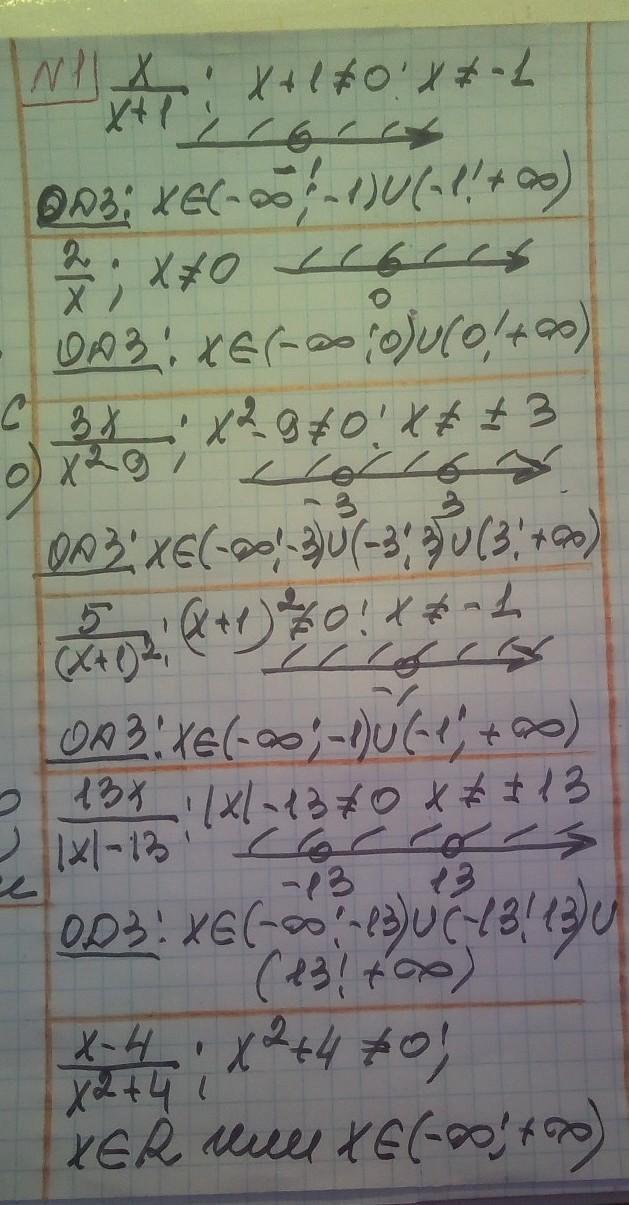 N1 x/(x+1); x+1≠0; x≠-1
-1
ОДЗ: x∈(-∞;-1)∪(-1;+∞)
2/x; x≠0
0
ОДЗ: x∈(-∞;0)∪(0;+∞)
с
3x/(x²-9); x²-9≠0; x≠±3
о)
-3 3
ОДЗ: x∈(-∞;-3)∪(-3;3)∪(3;+∞)
5/(x+1)²; (x+1)²≠0; x≠-1
-1
ОДЗ: x∈(-∞;-1)∪(-1;+∞)
13x/(|x|-13); |x|-13≠0 x≠±13
-13 13
ОДЗ: x∈(-∞;-13)∪(-13;13)∪
(13;+∞)
(x-4)/(x²+4); x²+4≠0;
x∈R или x∈(-∞;+∞)